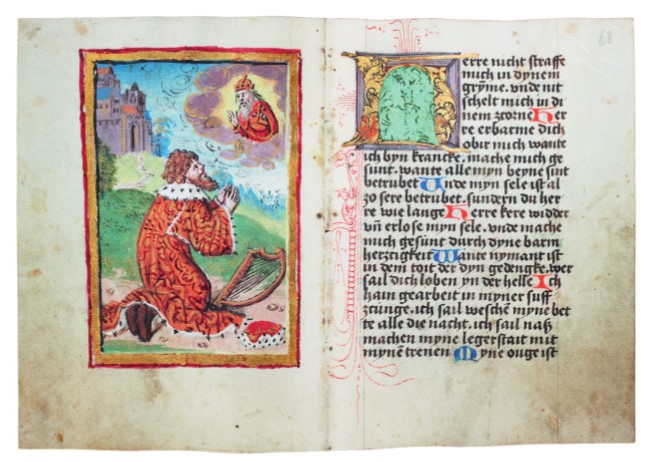 68
Herre nicht straffe
mich in dynem
gryme. vnde nit
schelt mich in di
nem zcorne Her
re erbarme dich
obir mich wante
ich byn krancke. mache mich ge
sunt. wante alle myn beyne sint
betrubet Unde myn sele ist al
zo sere betrubet. sundern du her
re wie lange Herre kere widder
vn̄ erlose myn sele. vnde mache
mich gesunt durch dyne barm
hertzigkeit Wante nymant ist
in dem toit der dyn gedengke. wer
sail dich loben yn der helle Ich
hain gearbeit in myner suff
zcunge. ich sail wesche myne bet
te alle die nacht. ich sail naß
machen myne legerstait mit
mynē trenen Myne ouge ist